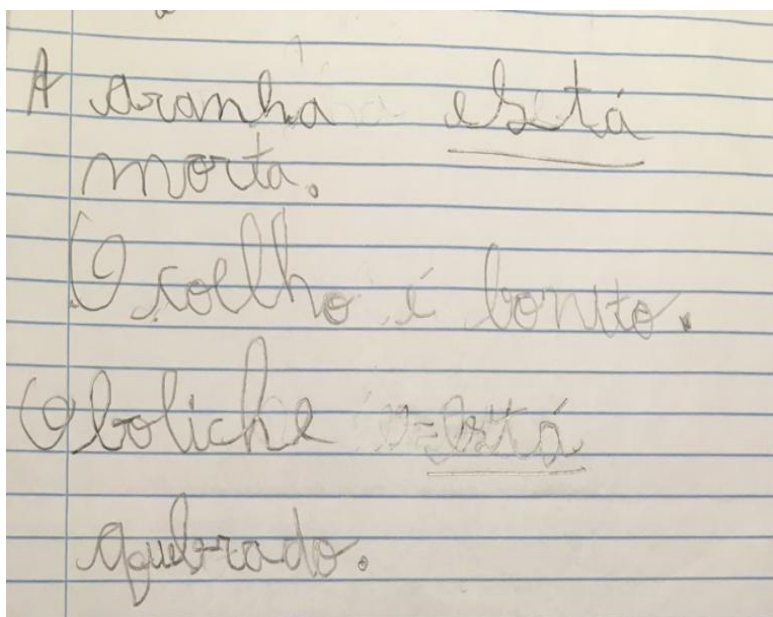 A aranha está
morta.
O coelho é bonito.
O boliche está
quebrado.